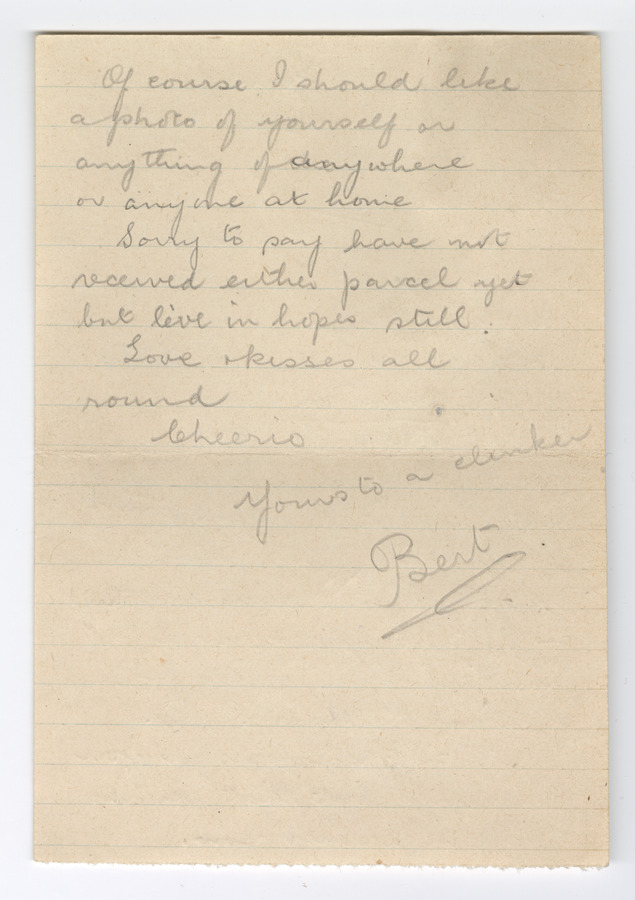 Of course I should like
a photo of yourself or
anything of anywhere
or anyone at home
Sorry to say have not
received either parcel yet
but live in hopes still.
Love & kisses all
round
Cheerio
Yours to a clinker
Bert